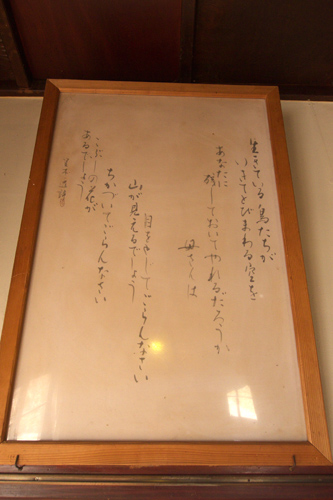 生きている鳥たちが
いきてとびまわる空を
あなたに
残しておいてやれるだろうか
母さんは
目をとじてごらんなさい
山が見えるでしょう
ちかづいてごらんなさい
こぶしの花が
あるでしょう